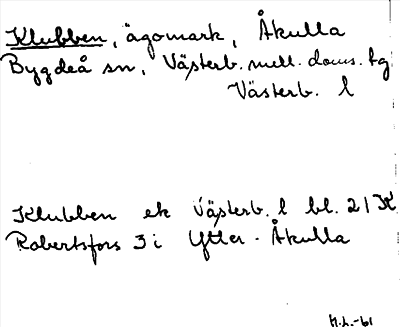 Klubben, ägomark, Åkulla
Bygdeå sn, Västerb. mell. doms. tg
Västerb. l
Klubben ek Västerb. l bl. 21 K
Robertsfors 3 i Ytter-Åkulla
M.L.-61